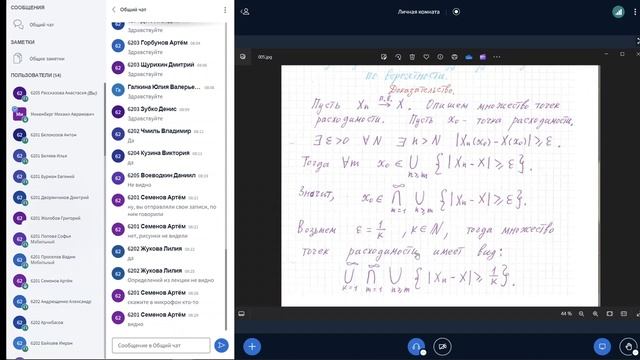 СООБЩЕНИЯ
Общий чат
ЗАМЕТКИ
Общие заметки
ПОЛЬЗОВАТЕЛИ (54)
6205 Рассказова Анастасия (Вы)
Мнженберг Михаил Авраамович
6201 Белоножов Антон
6201 Беляев Илья
6201 Бурмен Евгений
6201 Дворянчиков Дмитрий
6201 Жалобов Григорий
6201 Попова Софья
Мобильный
6201 Проскеев Вадим
Мобильный
6201 Семенов Артём
6202 Андрющенко Александр
6202 Арчибасов
6202 Байцаев Имран
Общий чат
Здравствуйте
6203 Горбунов Артём 08:09
Здравствуйте
6203 Шурихин Дмитрий 08:09
Здравствуйте
Галкина Юлия Валерье... 08:09
Здравствуйте
6203 Зубко Денис 08:09
Здравствуйте
6202 Чмиль Владимир 08:12
Да
6204 Кузина Виктория 08:13
да
6205 Воеводкин Даниил
Не видно
6201 Семенов Артём
ну, вы отправляли свои записи, по ним говорили
6201 Семенов Артём
нет, рисунки не видели
6202 Жукова Лилия
да
6202 Жукова Лилия
Определений из лекции не видно
6201 Семенов Артём
скажите в микрофон кто-то
6201 Семенов Артём
видно
Сообщение в Общий чат
Личная комната
005.jpg
по вероятности.
Доказательство.
Пусть Xn п.в.→ X. Опишем множество точек
расходимости. Пусть x₀ - точка расходимости.
∃ ε>0 ∀N ∃ n>N |Xn(x₀)-X(x₀)|≥ε.
Тогда ∀m x₀ ∈ ⋃ n≥m {|Xn-X|≥ε}.
Значит, x₀ ∈ ⋂ m=1 ∞ ⋃ n≥m {|Xn-X|≥ε}.
Возьмем ε=1/k, k∈N, тогда множество
точек расходимости имеет вид:
⋃ k=1 ∞ ⋂ m=1 ∞ ⋃ n≥m {|Xn-X|≥1/k}.
44 %